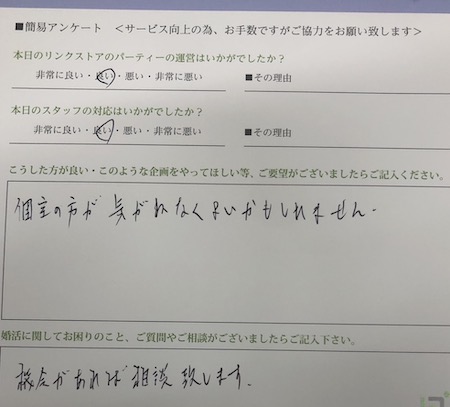 ■簡易アンケート <サービス向上の為、お手数ですがご協力をお願い致します>
本日のリンクストアのパーティーの運営はいかがでしたか?
非常に良い・良い・悪い・非常に悪い ■その理由
本日のスタッフの対応はいかがでしたか?
非常に良い・良い・悪い・非常に悪い ■その理由
こうした方が良い・このような企画をやってほしい等、ご要望がございましたらご記入ください。
個室の方が気がねなくよいかもしれません。
婚活に関してお困りのこと、ご質問やご相談がございましたらご記入下さい。
機会があれば相談致します。